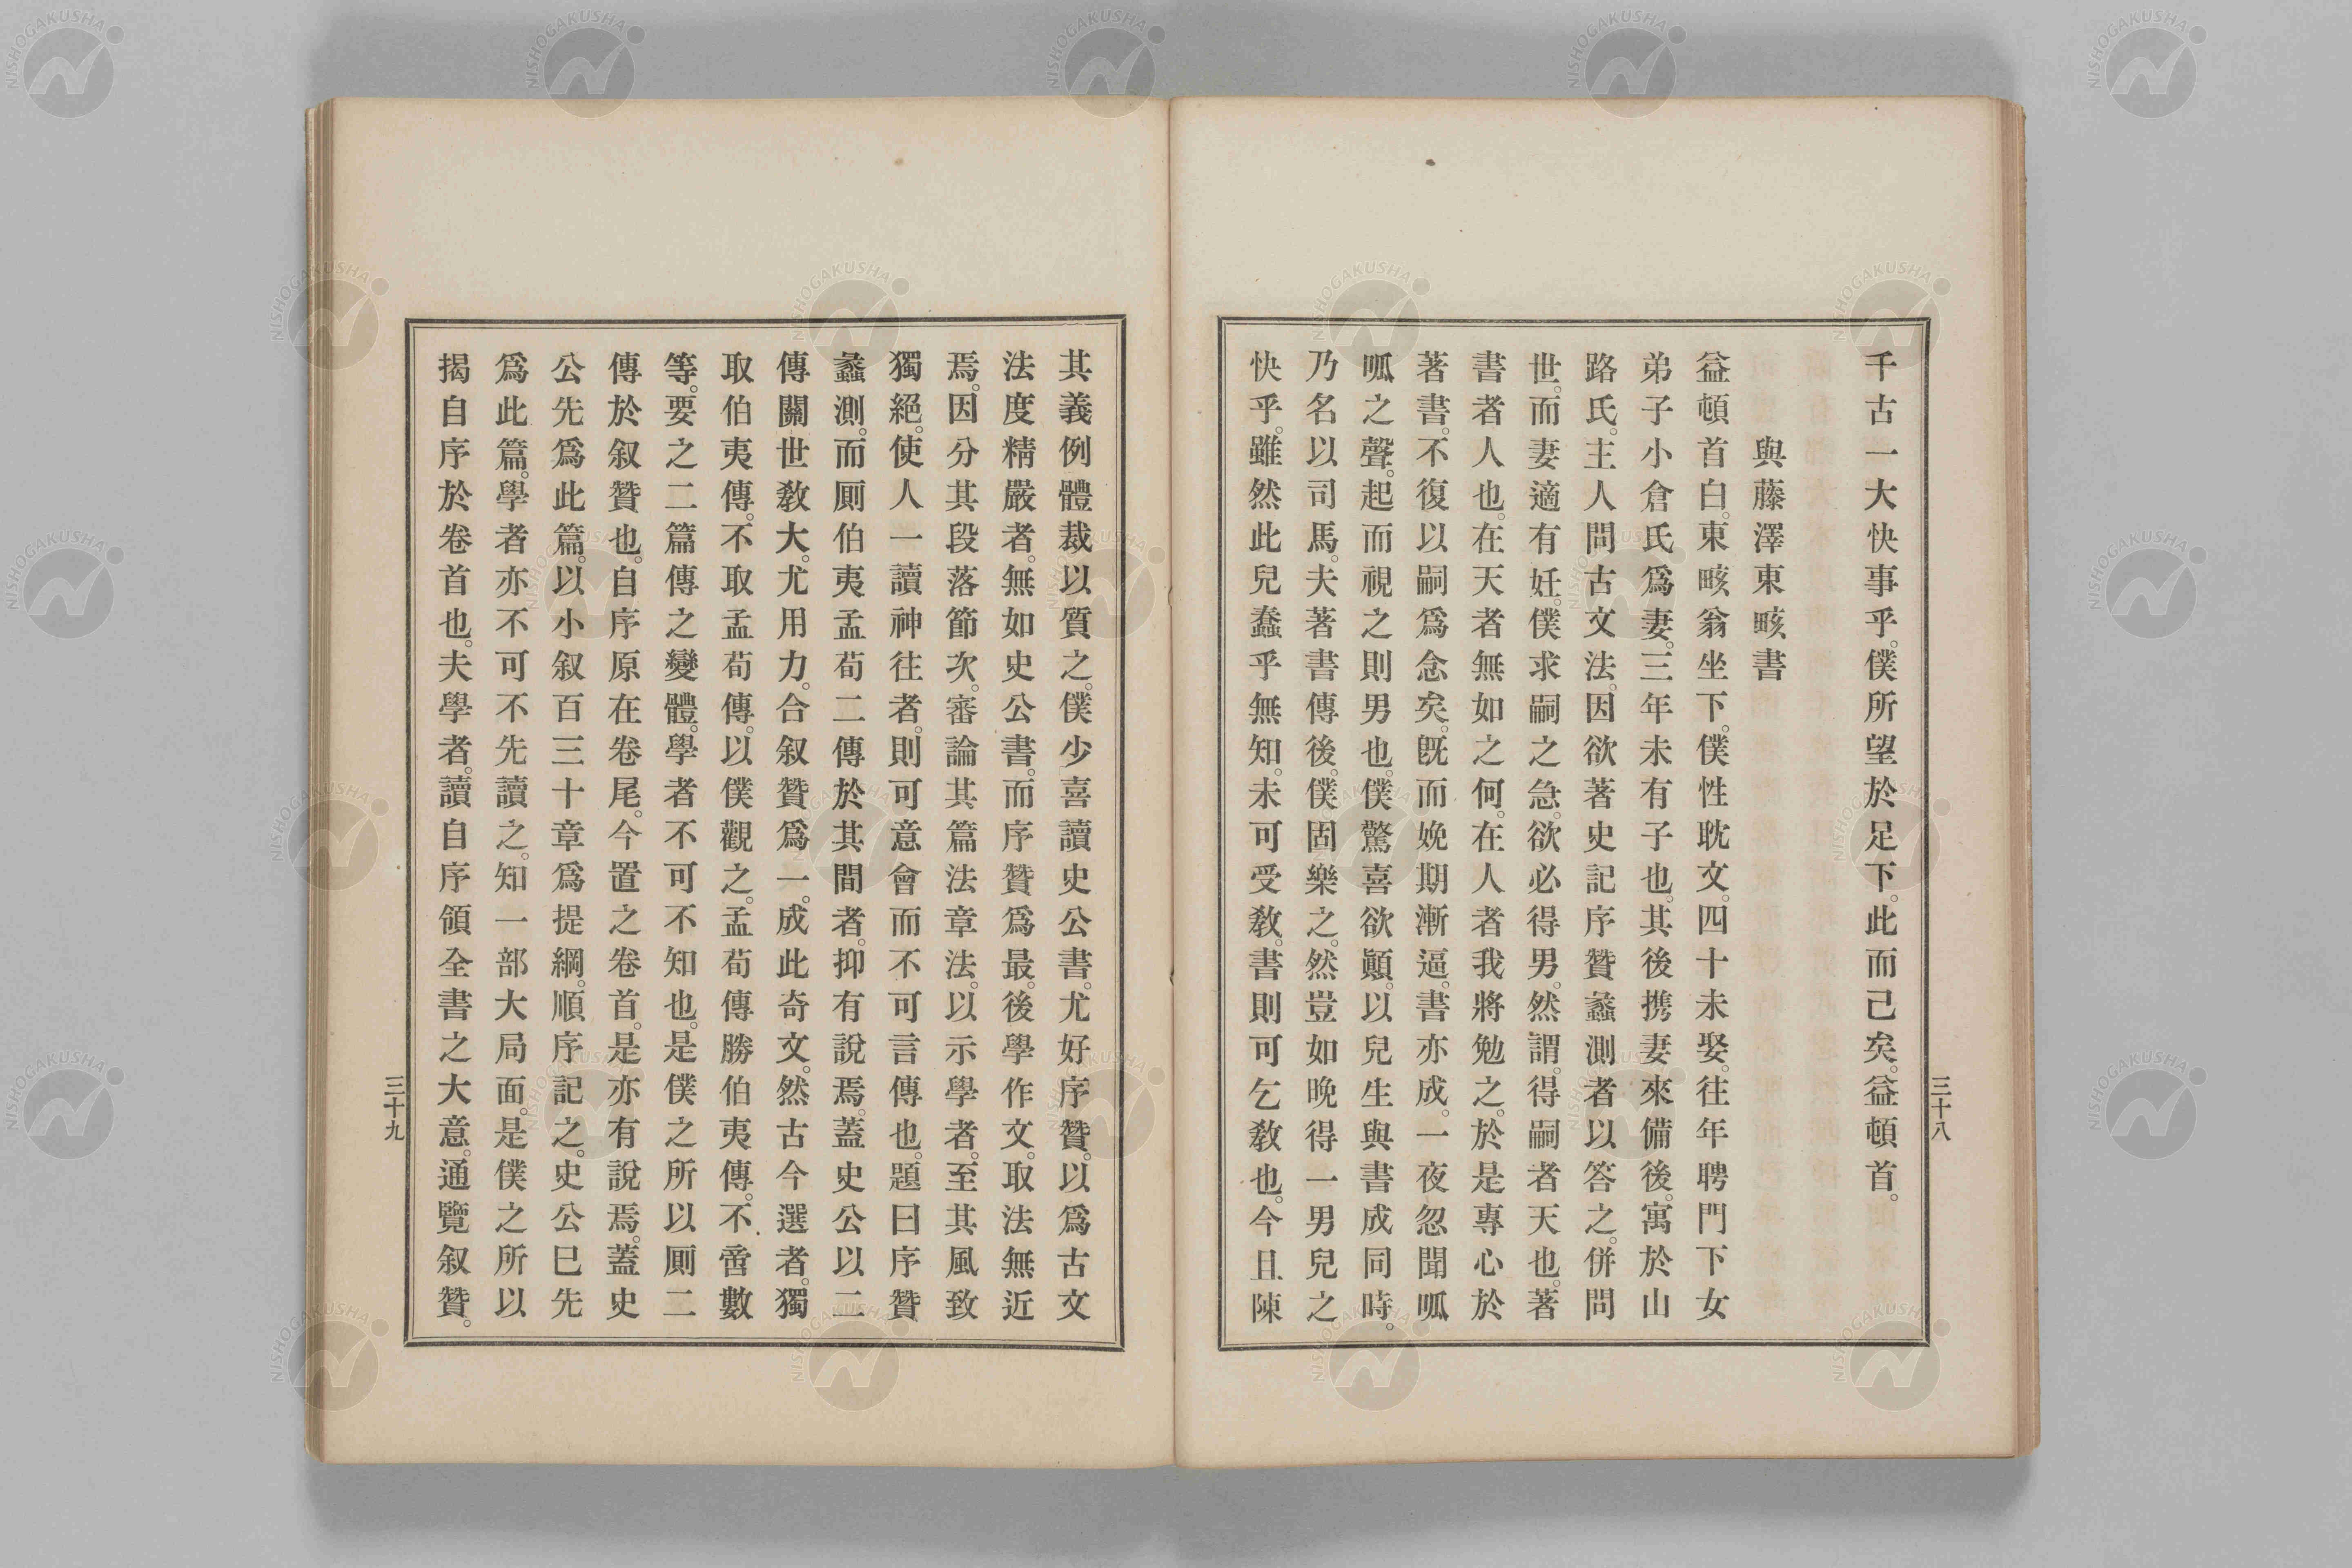 千古一大快事乎。僕所望於足下。此而己矣。益頓首。
與藤澤東畡書
益頓首白。東畡翁坐下。僕性耽文。四十未娶。往年聘門下女
弟子小倉氏爲妻。三年未有子也。其後携妻來備後。寓於山
路氏。主人問古文法。因欲著史記序贊蠡測者以答之。併問
世。而妻適有妊。僕求嗣之急。欲必得男。然謂。得嗣者天也。著
書者人也。在天者無如之何。在人者我將勉之。於是專心於
著書。不復以嗣爲念矣。既而娩期漸逼。書亦成。一夜忽聞呱
呱之聲。起而視之則男也。僕驚喜欲顚。以兒生與書成同時。
乃名以司馬。夫著書傳後。僕固樂之。然豈如晩得一男兒之
快乎。雖然此兒蠢乎無知。未可受教。書則可乞教也。今且陳
三十八
其義例體裁以質之。僕少喜讀史公書。尤好序贊。以爲古文
法度精嚴者。無如史公書。而序贊爲最。後學作文。取法無近
焉。因分其段落節次。審論其篇法章法。以示學者。至其風致
獨絕。使人一讀神往者。則可意會而不可言傳也。題曰序贊
蠡測。而厠伯夷孟荀二傳於其間者。抑有說焉。蓋史公以二
傳關世敎大。尤用力。合叙贊爲一。成此奇文。然古今選者。獨
取伯夷傳。不取孟荀傳。以僕觀之。孟荀傳勝伯夷傳。不啻數
等。要之二篇傳之變體。學者不可不知也。是僕之所以厠二
傳於叙贊也。自序原在卷尾。今置之卷首。是亦有說焉。蓋史
公先爲此篇。以小叙百三十章爲提綱。順序記之。史公已先
爲此篇。學者亦不可不先讀之。知一部大局面。是僕之所以
揭自序於卷首也。夫學者。讀自序領全書之大意。通覽叙贊。
三十九
NISHOGAKUSHA